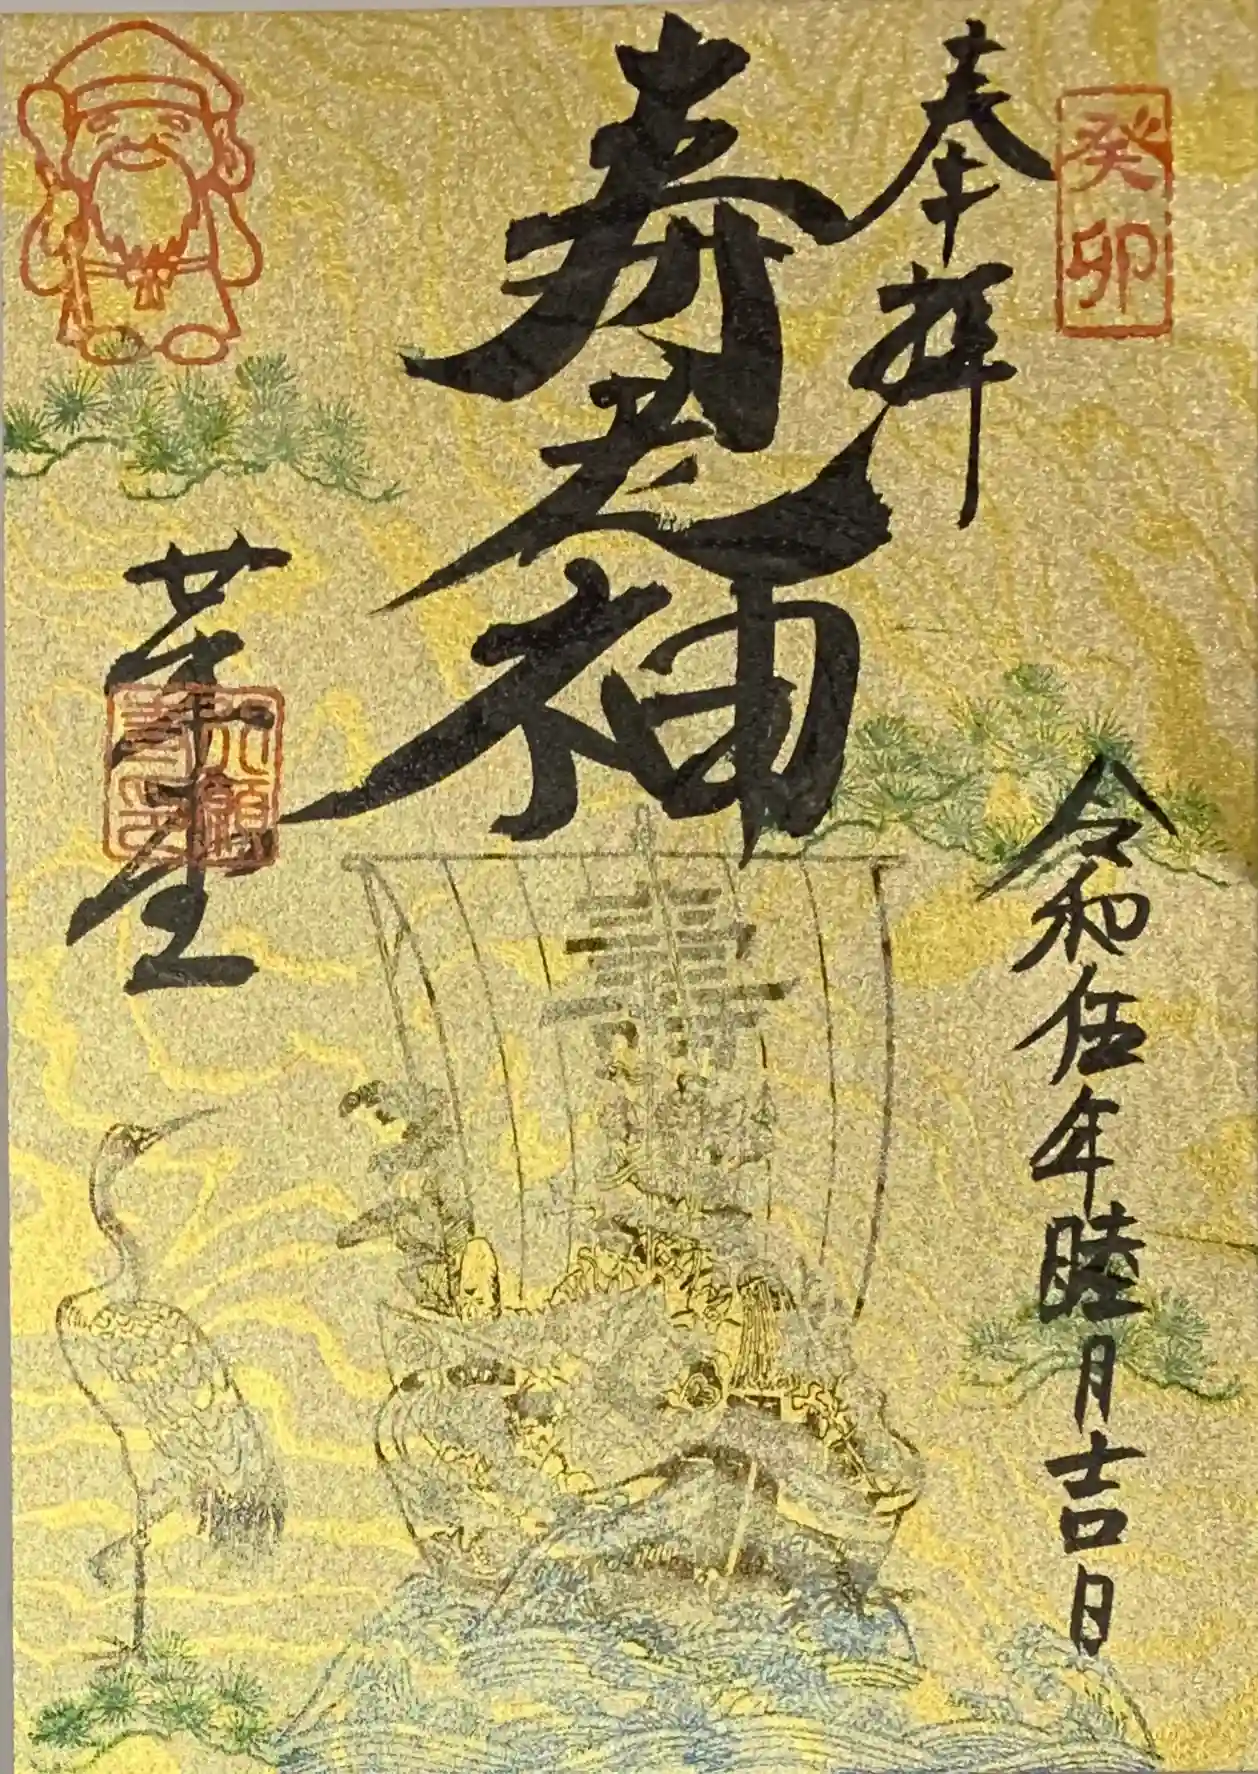 癸卯
奉拝
寿老神
令和伍年睦月吉日
壽